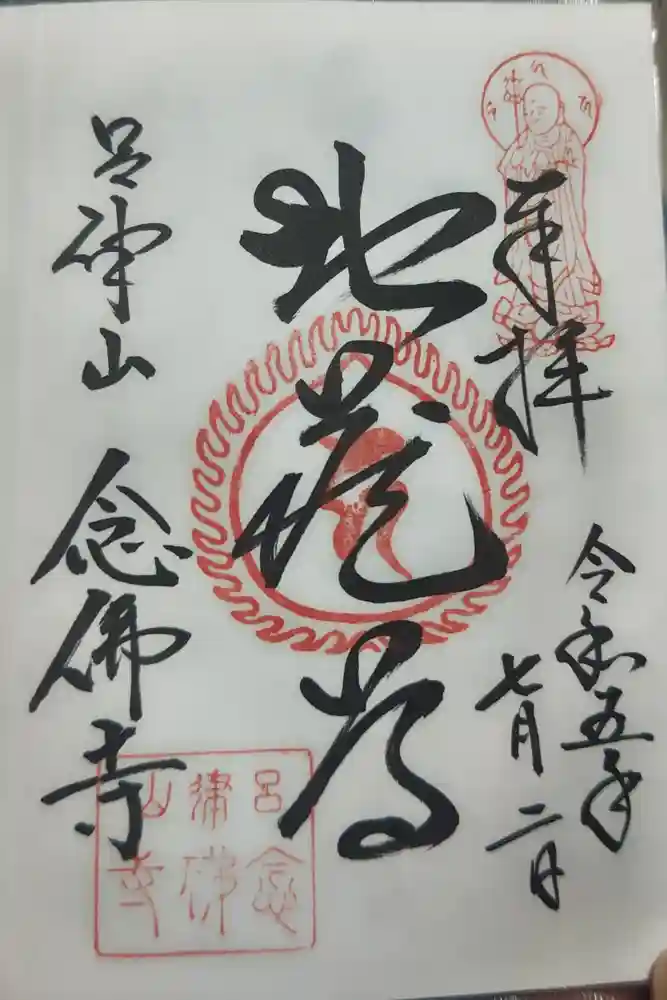 奉拝
令和五年
七月二日
地蔵尊
呂律山 念佛寺
呂律山
念佛寺